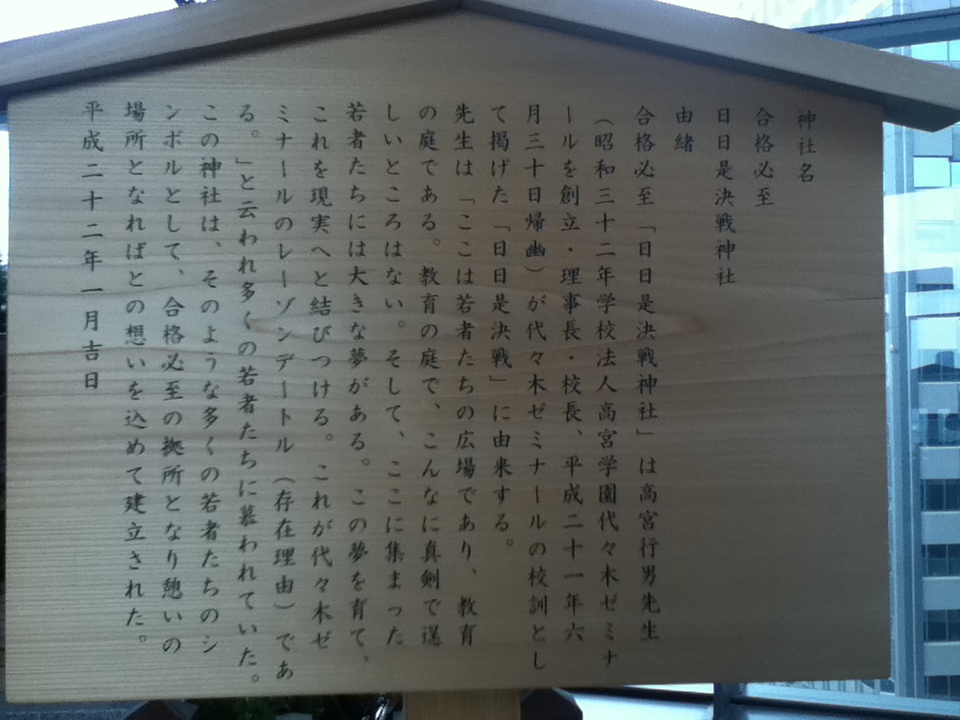 神社名
合格必至
日日是決戦神社
由緒
合格必至「日日是決戦神社」は高宮行男先生
（昭和三十二年学校法人高宮学園代々木ゼミナ
ールを創立・理事長・校長、平成二十一年六
月三十日帰幽）が代々木ゼミナールの校訓とし
て掲げた「日日是決戦」に由来する。
先生は「ここは若者たちの広場であり、教育
の庭である。教育の庭で、こんなに真剣で逞
しいところはない。そして、ここに集まった
若者たちには大きな夢がある。この夢を育て、
これを現実へと結びつける。これが代々木ゼ
ミナールのレーゾンデートル（存在理由）であ
る。」と云われ多くの若者たちに慕われていた。
この神社は、そのような多くの若者たちのシ
ンボルとして、合格必至の拠所となり憩いの
場所となればとの想いを込めて建立された。
平成二十二年一月吉日